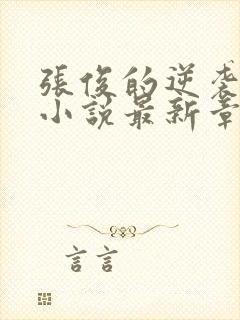 張俊的逆袭
小説最新章
言言